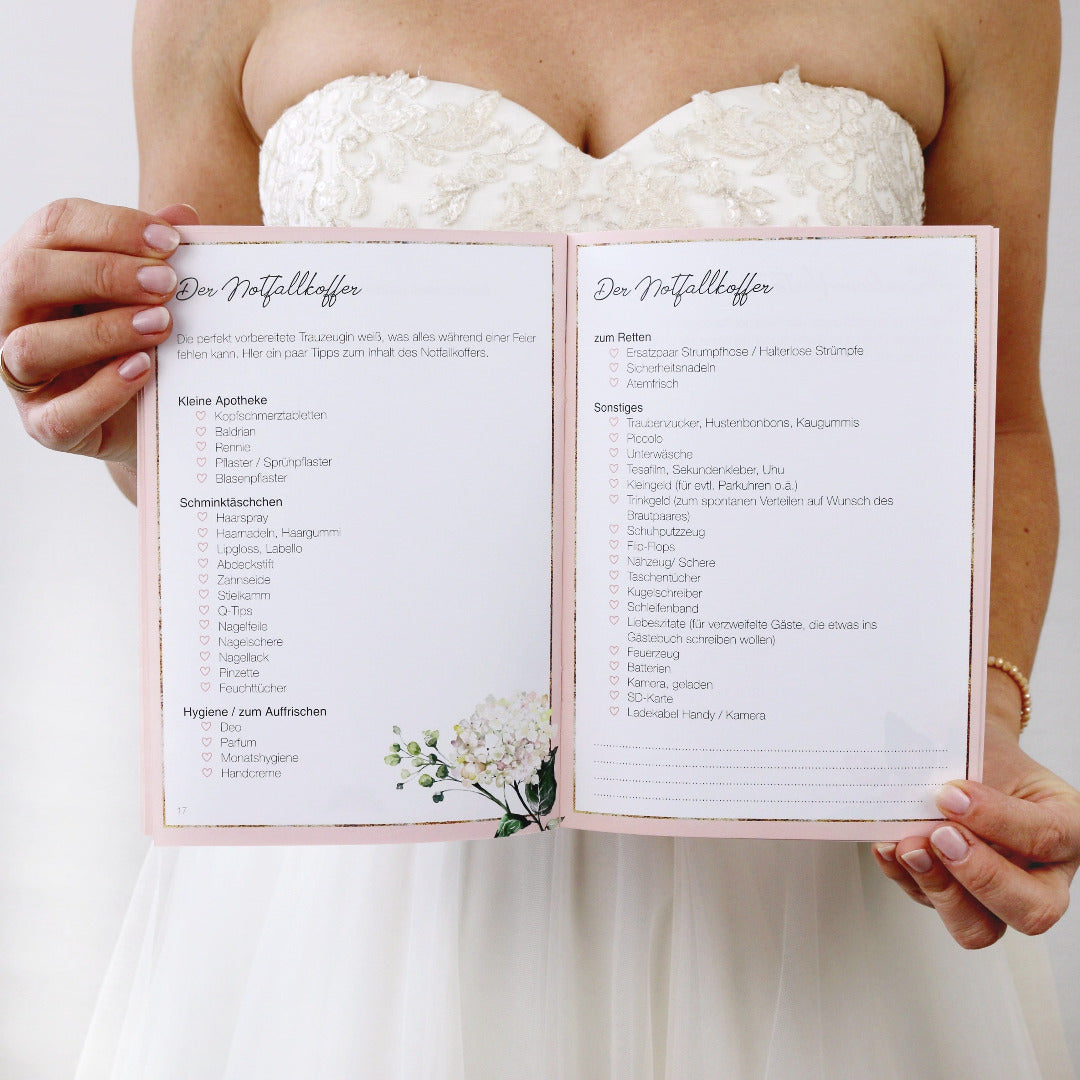 Der Notfallkoffer
Die perfekt vorbereitete Trauzeugin weiß, was alles während einer Feier
fehlen kann. HIer ein paar Tipps zum Inhalt des Notfallkoffers.
Kleine Apotheke
Kopfschmerztabletten
Baldrian
Rennie
Pflaster / Sprühpflaster
Blasenpflaster
Schminktäschchen
Haarspray
Haarnadeln, Haargummi
Lipgloss, Labello
Abdeckstift
Zahnseide
Stielkamm
Q-Tips
Nagelfeile
Nagelschere
Nagellack
Pinzette
Feuchttücher
Hygiene / zum Auffrischen
Deo
Parfum
Monatshygiene
Handcreme
17
Der Notfallkoffer
zum Retten
Ersatzpaar Strumpfhose / Halterlose Strümpfe
Sicherheitsnadeln
Atemfrisch
Sonstiges
Traubenzucker, Hustenbonbons, Kaugummis
Piccolo
Unterwäsche
Tesafilm, Sekundenkleber, Uhu
Kleingeld (für evtl. Parkuhren o.ä.)
Trinkgeld (zum spontanen Verteilen auf Wunsch des
Brautpaares)
Schuhputzzeug
Flip-Flops
Nähzeug/ Schere
Taschentücher
Kugelschreiber
Schleifenband
Liebeszitate (für verzweifelte Gäste, die etwas ins
Gästebuch schreiben wollen)
Feuerzeug
Batterien
Kamera, geladen
SD-Karte
Ladekabel Handy / Kamera